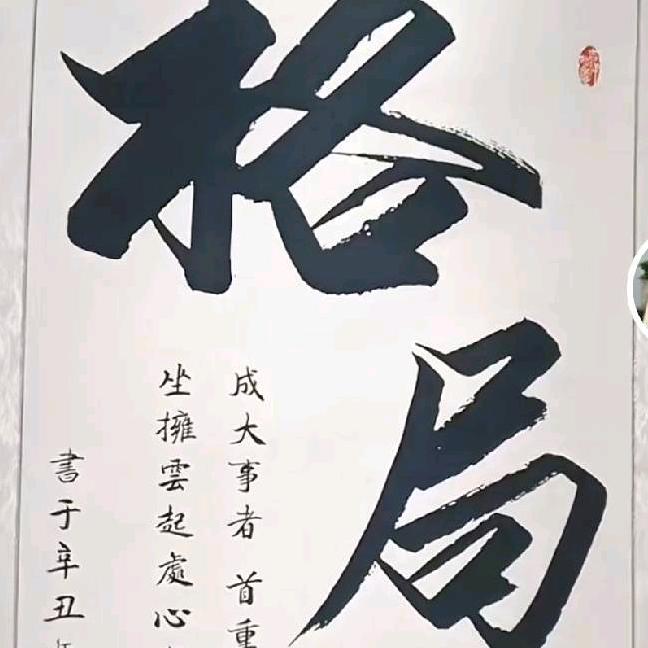 格局
成大事者 首重
坐擁雲起處心
書于辛丑